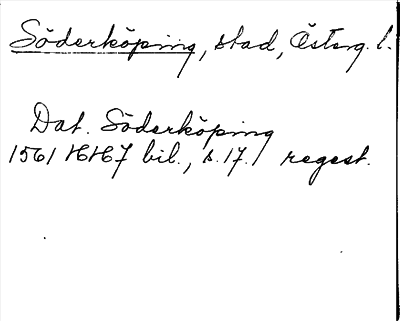 Söderköping, stad, Österg. l.
Dat. Söderköping
1561 16/6 7 bil., s. 17. / regest.